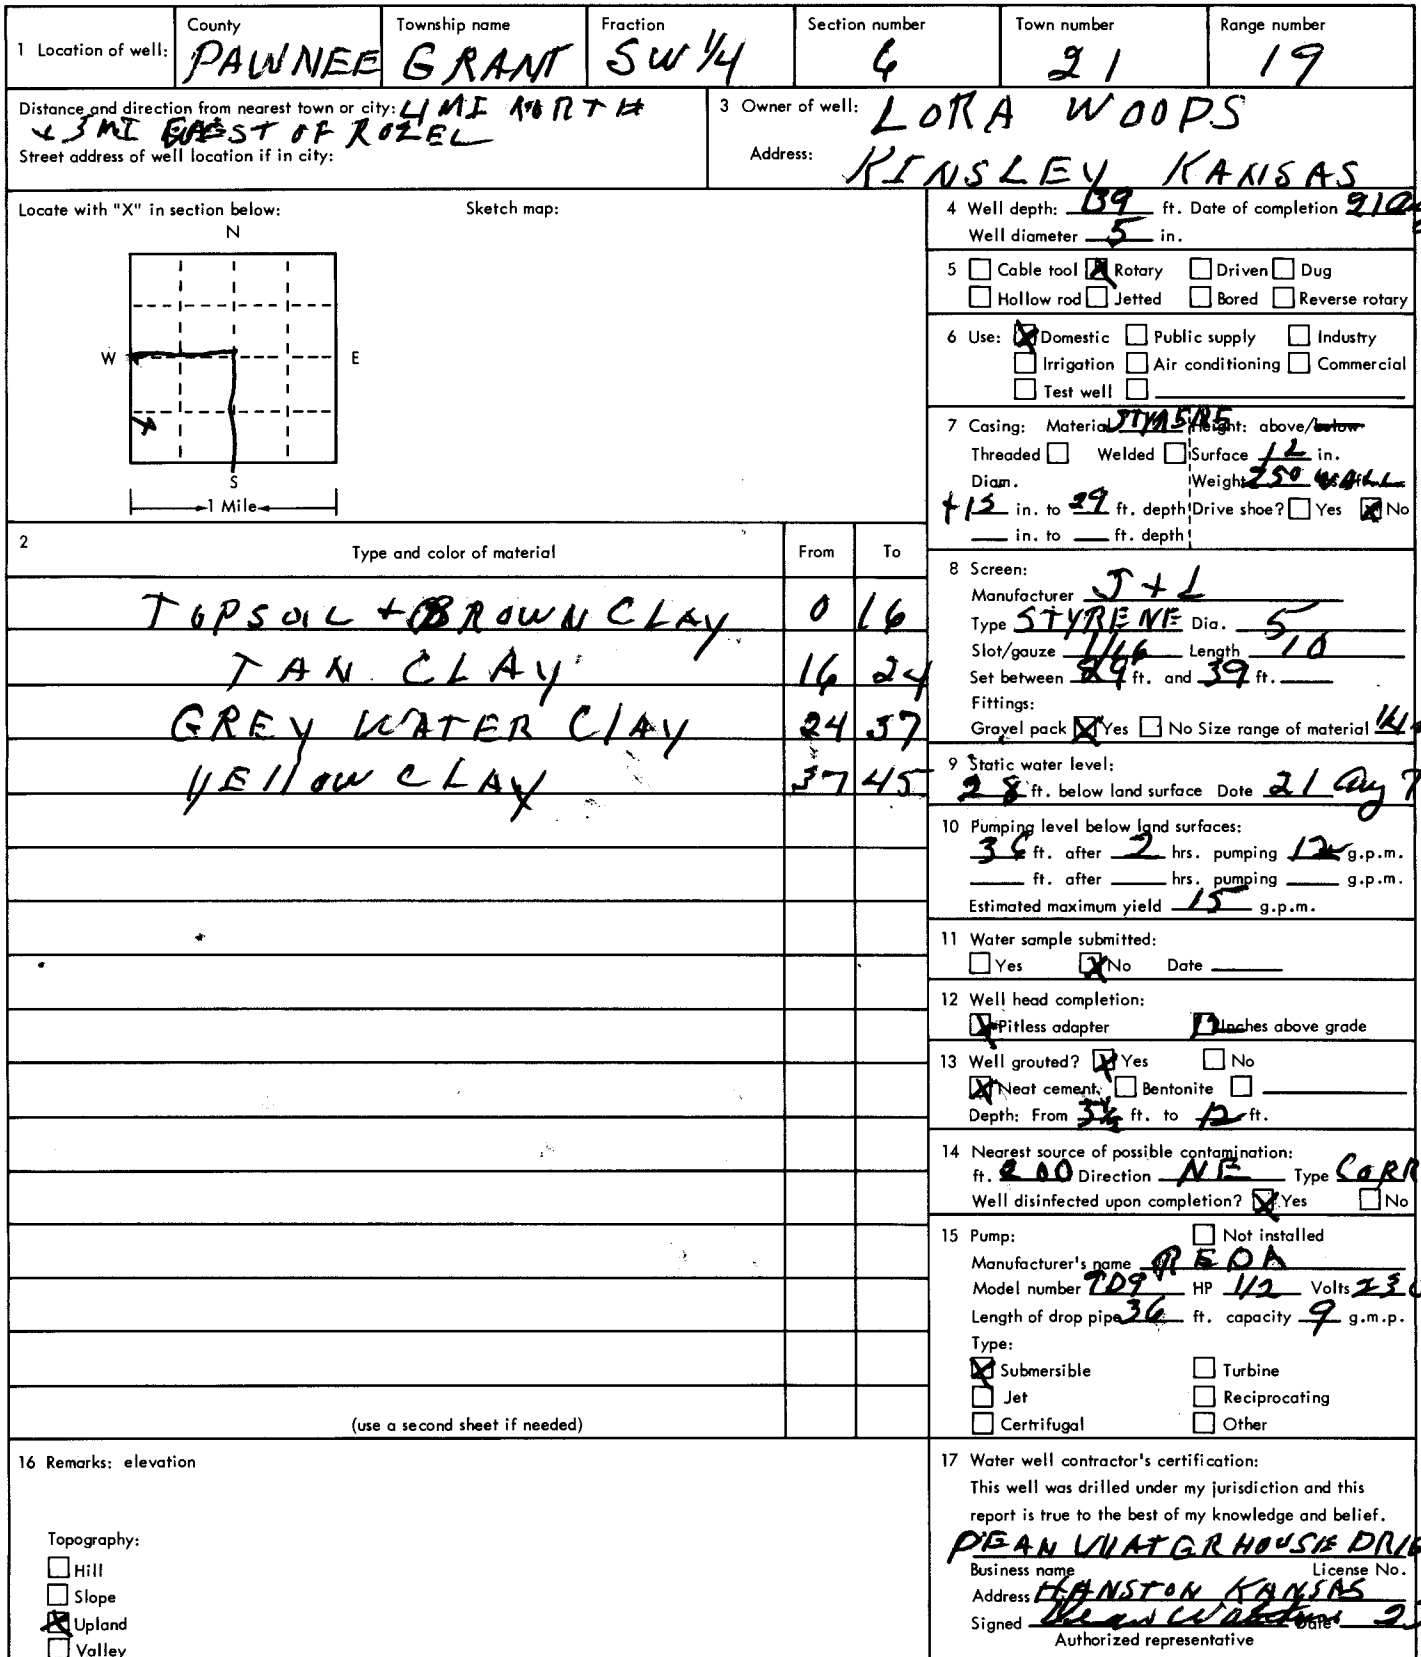 1 Location of well:
County
PAWNEE
Township name
GRANT
Fraction
SW 1/4
Section number
6
Town number
21
Range number
19
Distance and direction from nearest town or city: 4 MI NORTH
+ 3 MI EAST OF ROZEL
Street address of well location if in city:
3 Owner of well: LORA WOODS
Address: KINSLEY KANSAS
Locate with "X" in section below:
Sketch map:
N
W E
S
1 Mile
2
Type and color of material From To
TOPSOIL + BROWN CLAY 0 16
TAN CLAY 16 24
GREY WATER CLAY 24 37
YELLOW CLAY 37 45
(use a second sheet if needed)
16 Remarks: elevation
Topography:
Hill
Slope
Upland
Valley
4 Well depth: 39 ft. Date of completion 21
Well diameter 5 in.
5 Cable tool Rotary Driven Dug
Hollow rod Jetted Bored Reverse rotary
6 Use: Domestic Public supply Industry
Irrigation Air conditioning Commercial
Test well
7 Casing: Material Height: above/below
Threaded Welded Surface 12 in.
Diam. Weight 250 WALL
+15 in. to 29 ft. depth Drive shoe? Yes No
in. to ft. depth
8 Screen:
Manufacturer J + L
Type STYRENE Dia. 5
Slot/gauze 1/16 Length 10
Set between 29 ft. and 39 ft.
Fittings:
Gravel pack Yes No Size range of material
9 Static water level:
28 ft. below land surface Date 21 Aug 7
10 Pumping level below land surfaces:
36 ft. after 2 hrs. pumping 12 g.p.m.
ft. after hrs. pumping g.p.m.
Estimated maximum yield 15 g.p.m.
11 Water sample submitted:
Yes No Date
12 Well head completion:
Pitless adapter 12 Inches above grade
13 Well grouted? Yes No
Neat cement Bentonite
Depth: From 3 1/2 ft. to 12 ft.
14 Nearest source of possible contamination:
ft. 200 Direction NE Type CORR
Well disinfected upon completion? Yes No
15 Pump: Not installed
Manufacturer's name REDA
Model number 7D9 HP 1/2 Volts 230
Length of drop pipe 36 ft. capacity 9 g.m.p.
Type:
Submersible Turbine
Jet Reciprocating
Certrifugal Other
17 Water well contractor's certification:
This well was drilled under my jurisdiction and this
report is true to the best of my knowledge and belief.
DEAN WATERHOUSE
Business name License No.
Address HANSTON KANSAS
Signed Date 23
Authorized representative